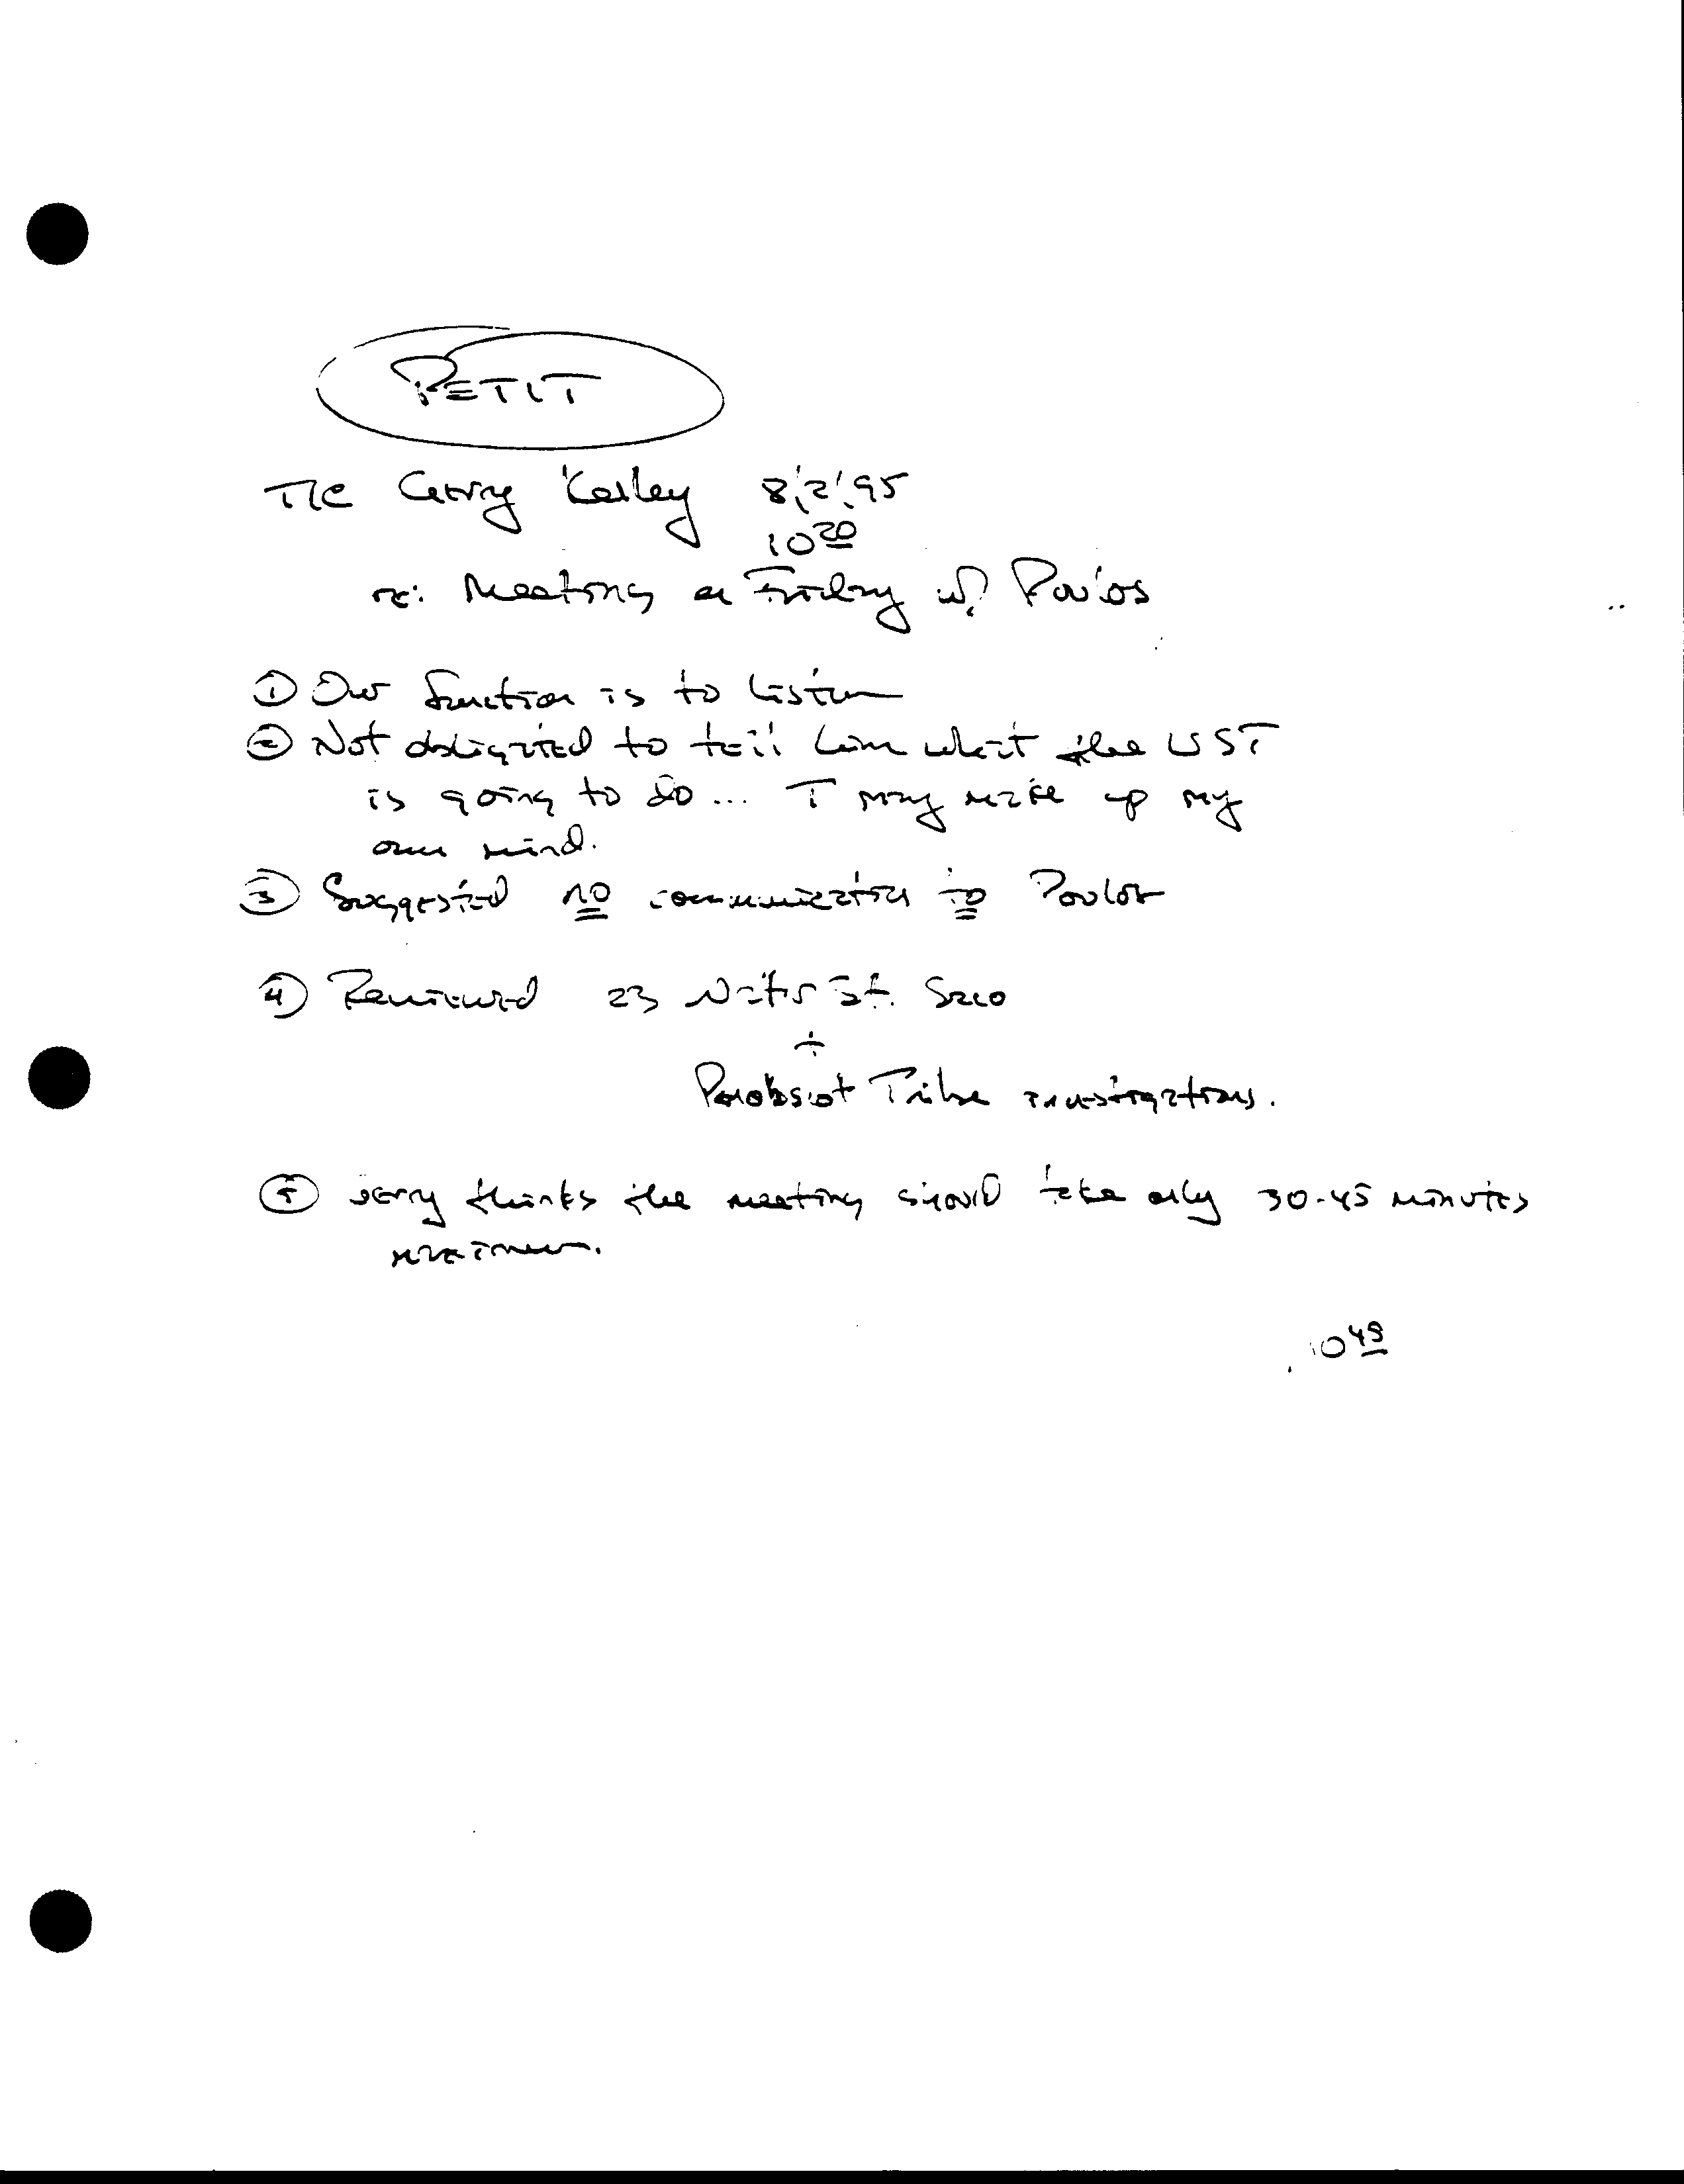 PETIT
T/C Gerry Kelley 8/2/95
10 20
re: Meeting on Friday w/ Poulos
① Our function is to listen
② Not obligated to tell him what the UST
is going to do... I may make up my
own mind.
③ Suggested no communication to Poulos
④ Reviewed 23 Water St. Saco
+
Penobscot Tribe investigations.
⑤ Jerry thinks the meeting should take only 30-45 minutes
maximum.
10 45